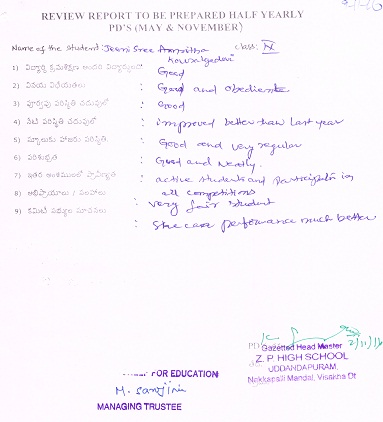 REVIEW REPORT TO BE PREPARED HALF YEARLY
PD'S (MAY & NOVEMBER)
Name of the student: Jeeni Sree Class: X
1) : Good
2) వినయ విధేయతలు : Good and obedients
3) పూర్వపు పరిస్థితి చదువులో : Good
4) నేటి పరిస్థితి చదువులో : improved better than last year
5) స్కూలుకు హాజరు పరిస్థితి : Good and very regular
6) పరిశుభ్రత : Good and Neatly.
7) ఇతర అంశములలో : active students and in
all competitions
8) అభిప్రాయాలు / : very fair student
9) కమిటీ సభ్యుల సూచనలు : She can performance much better
Gazetted Head Master
Z. P. HIGH SCHOOL
UDDANDAPURAM,
Nakkapalli Mandal, Visakha Dt
FOR EDUCATION
M. Sanjini
MANAGING TRUSTEE